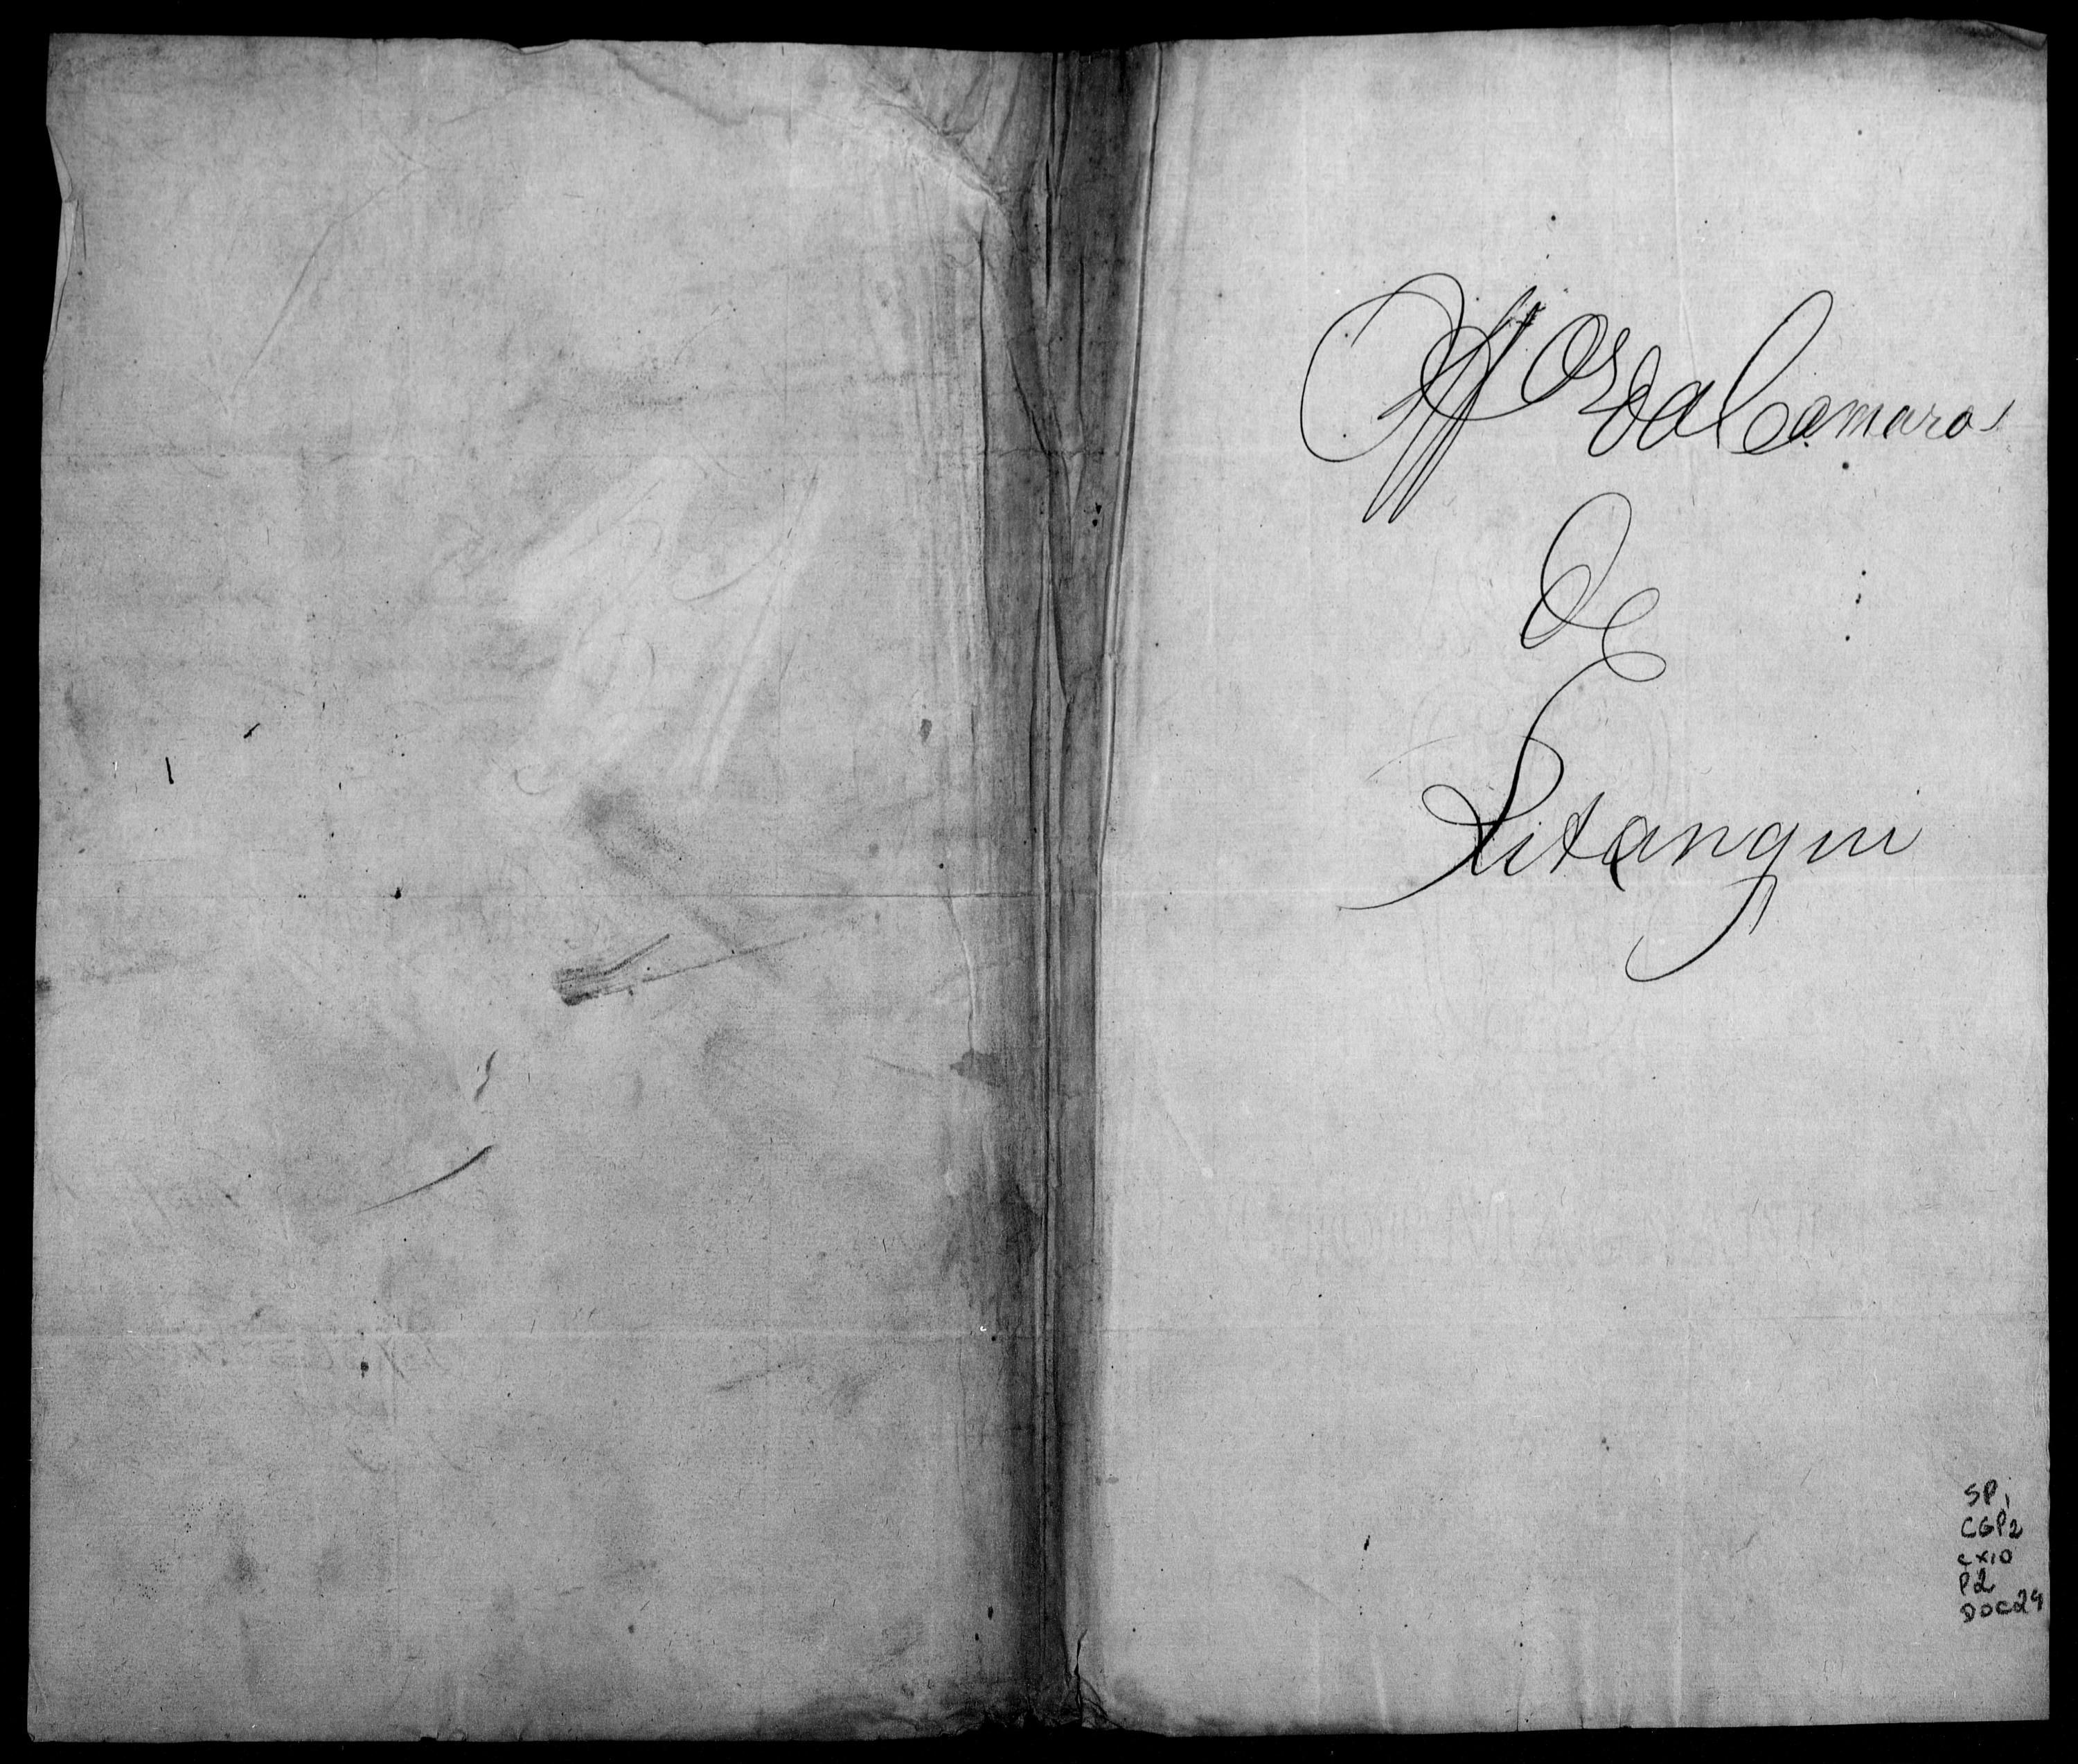 Off.os da Camara
de
Pitangui
SP1
CGP2
CX10
P2
DOC29